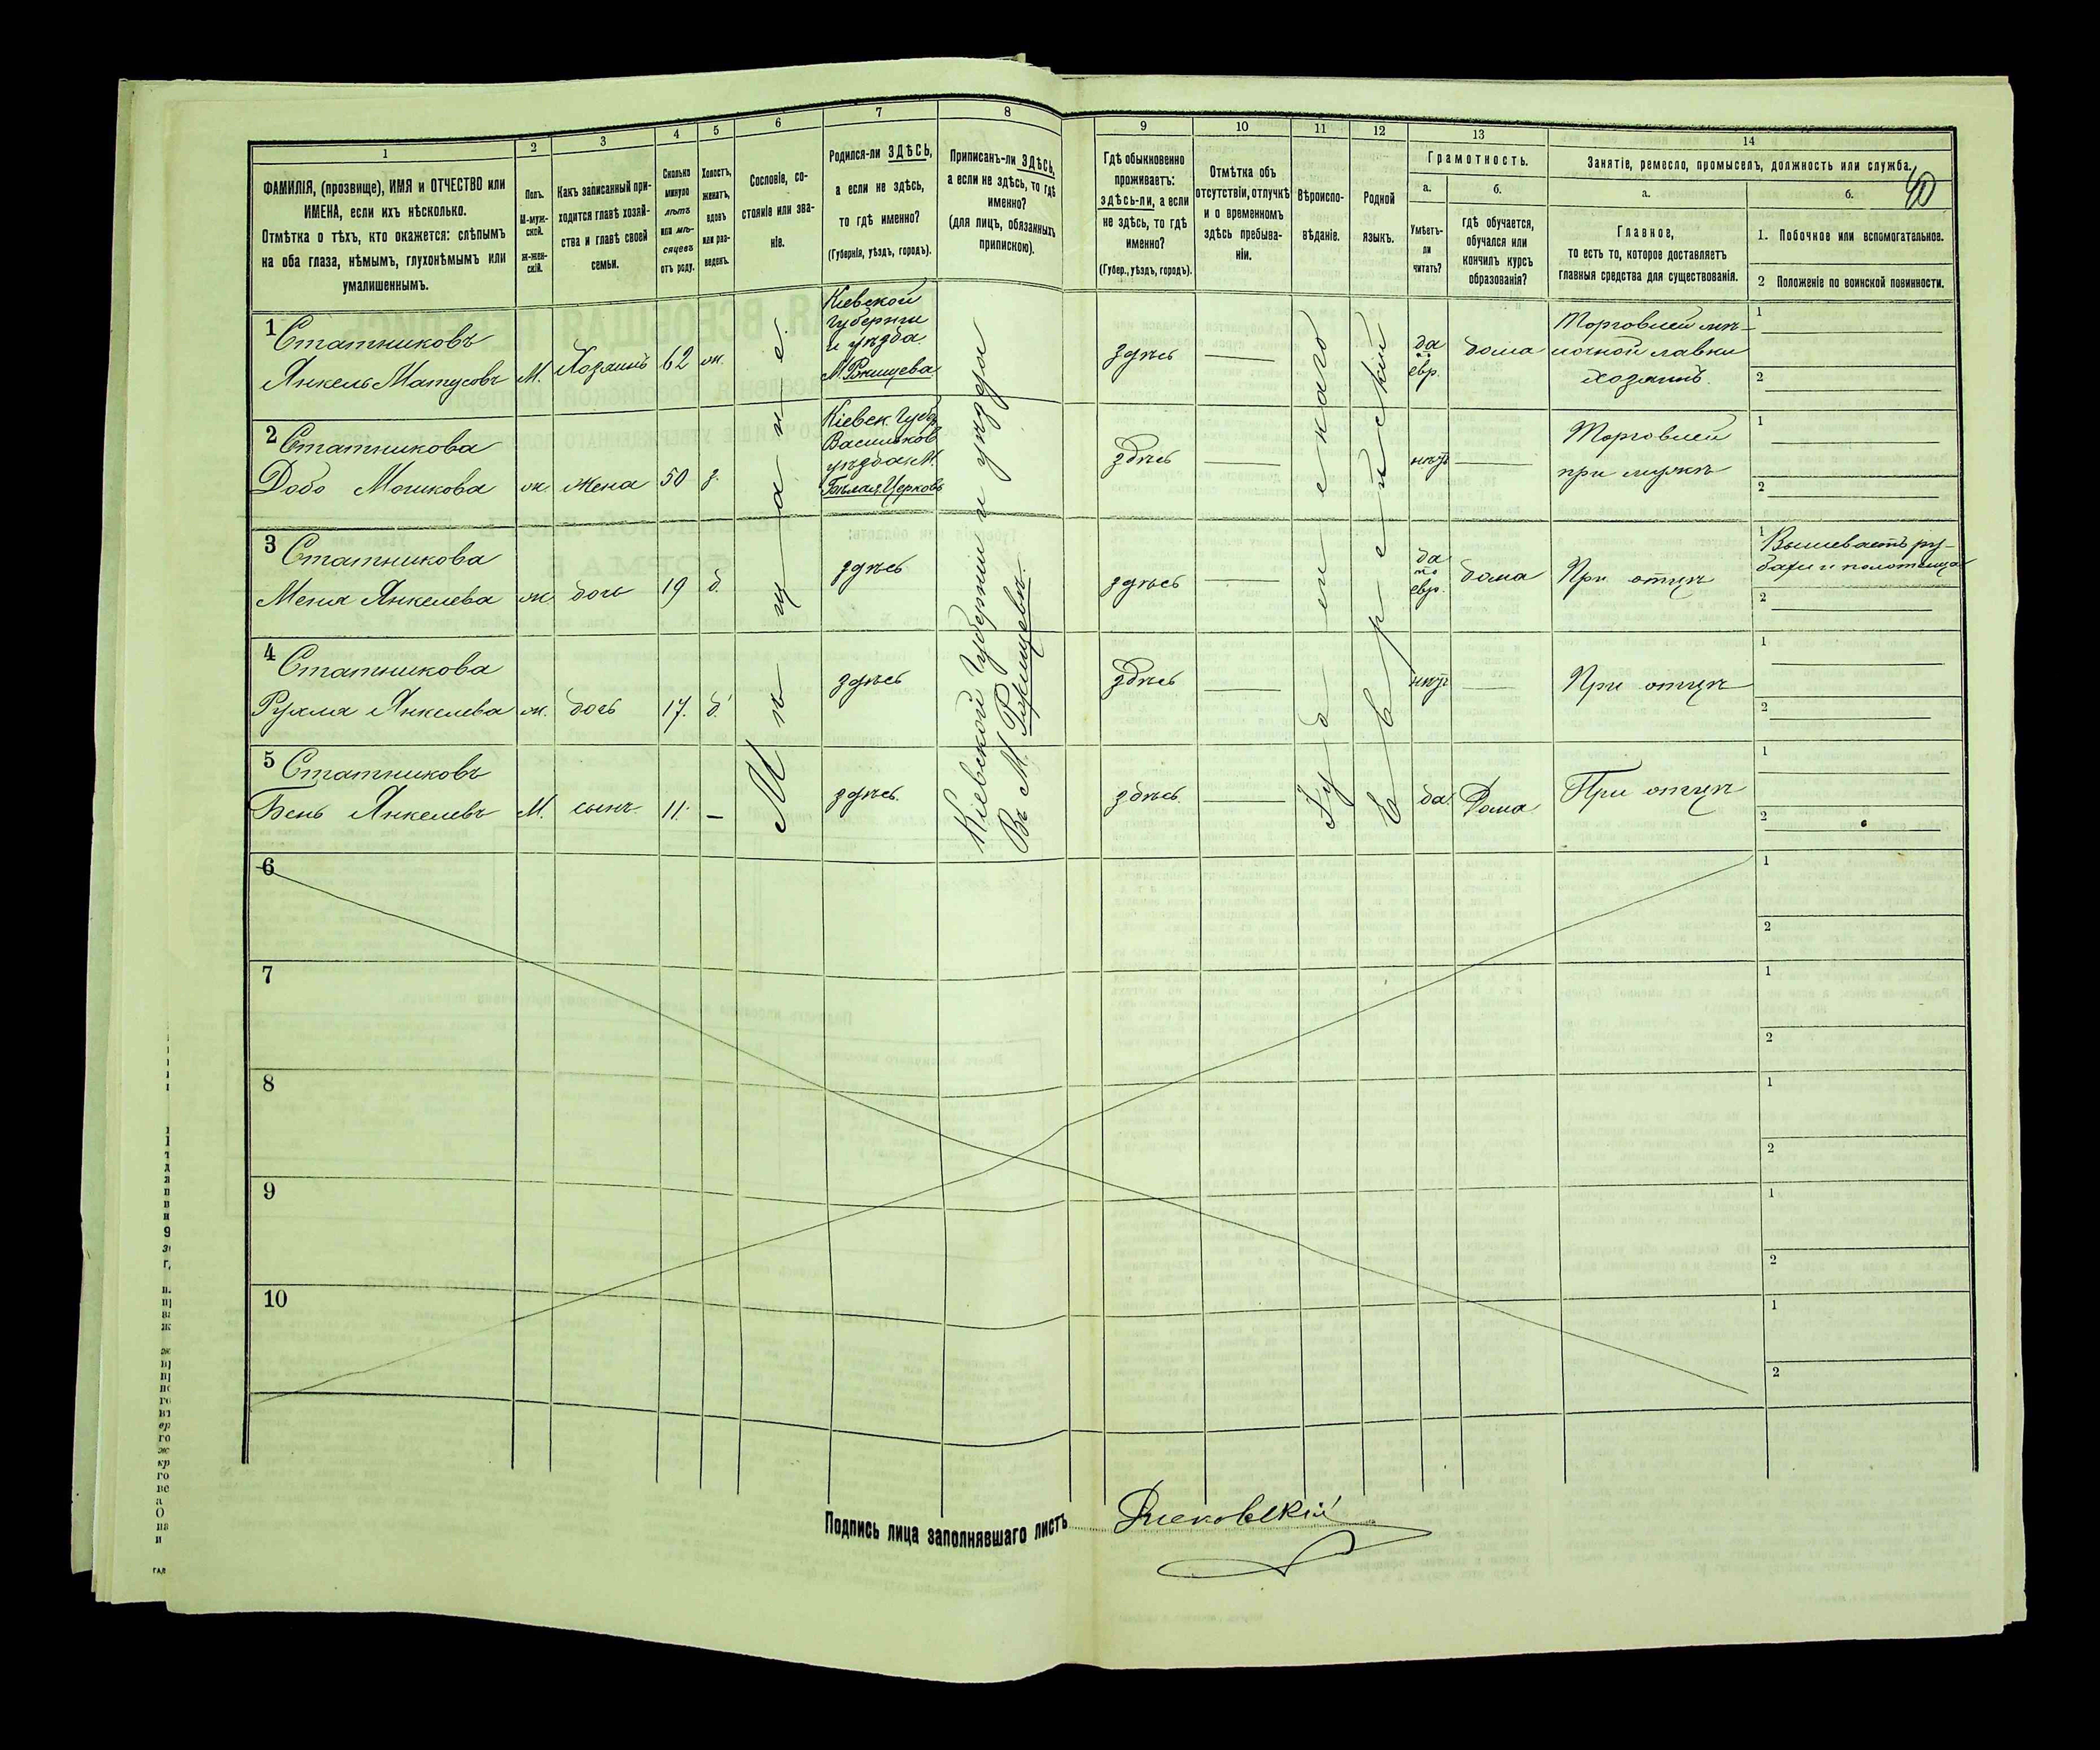 1
2
3
4
5
6
7
8
9
10
11
12
13
14
ФАМИЛІЯ, (прозвище), ИМЯ и ОТЧЕСТВО или
ИМЕНА, если ихъ нѣсколько.
Отмѣтка о тѣхъ, кто окажется: слѣпымъ
на оба глаза, нѣмымъ, глухонѣмымъ или
умалишеннымъ.
Полъ.
М-муж-
ской.
Ж-жен-
скій.
Какъ записанный при-
ходится главѣ хозяй-
ства и главѣ своей
семьи.
Сколько
минуло
лѣтъ
или мѣ-
сяцевъ
отъ роду.
Холостъ,
женатъ,
вдовъ
или раз-
веденъ.
Сословіе, со-
стояніе или зва-
ніе.
Родился-ли ЗДѢСЬ,
а если не здѣсь,
то гдѣ именно?
(Губернія, уѣздъ, городъ).
Приписанъ-ли ЗДѢСЬ,
а если не здѣсь, то гдѣ
именно?
(для лицъ, обязанныхъ
припискою).
Гдѣ обыкновенно
проживаетъ:
здѣсь-ли, а если
не здѣсь, то гдѣ
именно?
(Губер., уѣздъ, городъ).
Отмѣтка объ
отсутствіи, отлучкѣ
и о временномъ
здѣсь пребыва-
ніи.
Вѣроиспо-
вѣданіе.
Родной
языкъ.
Грамотность.
а.
Умѣетъ-
ли
читать?
б.
гдѣ обучается,
обучался или
кончилъ курсъ
образованія?
Занятіе, ремесло, промыселъ, должность или служба.
40
а.
Главное,
то есть то, которое доставляетъ
главныя средства для существованія.
б.
1. Побочное или вспомогательное.
2 Положеніе по воинской повинности.
1 Статниковъ
Янкель Матусовъ
М.
Хозяинъ
62
ж.
Кіевской
губерніи
и уѣзда
М. Ржищева
здѣсь
да
евр.
дома
Торговлей
лочной лавки
хозяинъ.
1
2
2 Статникова
Добо Мошкова
ж.
жена
50
з.
Кіевск. Губер
Васильков
уѣзда М.
Бѣлая Церковь
здѣсь
нѣтъ
Торговлей
при мужѣ
1
2
3 Статникова
Меня Янкелева
ж.
дочь
19
д.
здѣсь
здѣсь
да
евр.
дома
При отцѣ
1 Вышиваетъ ру-
бахи и полотенца
2
4 Статникова
Рухля Янкелева
ж.
дочь
17.
д.
здѣсь
здѣсь
нѣтъ
При отцѣ
1
2
5 Статниковъ
Бень Янкелевъ
М.
сынъ
11.
здѣсь.
здѣсь.
да.
Дома
При отцѣ
1
2
Мѣщане.
Кіевской Губерніи и уѣзда
Въ М. Ржищевѣ.
Іудейскаго
Еврейскій
6
1
2
7
1
2
8
1
2
9
1
2
10
1
2
Подпись лица заполнявшаго листъ